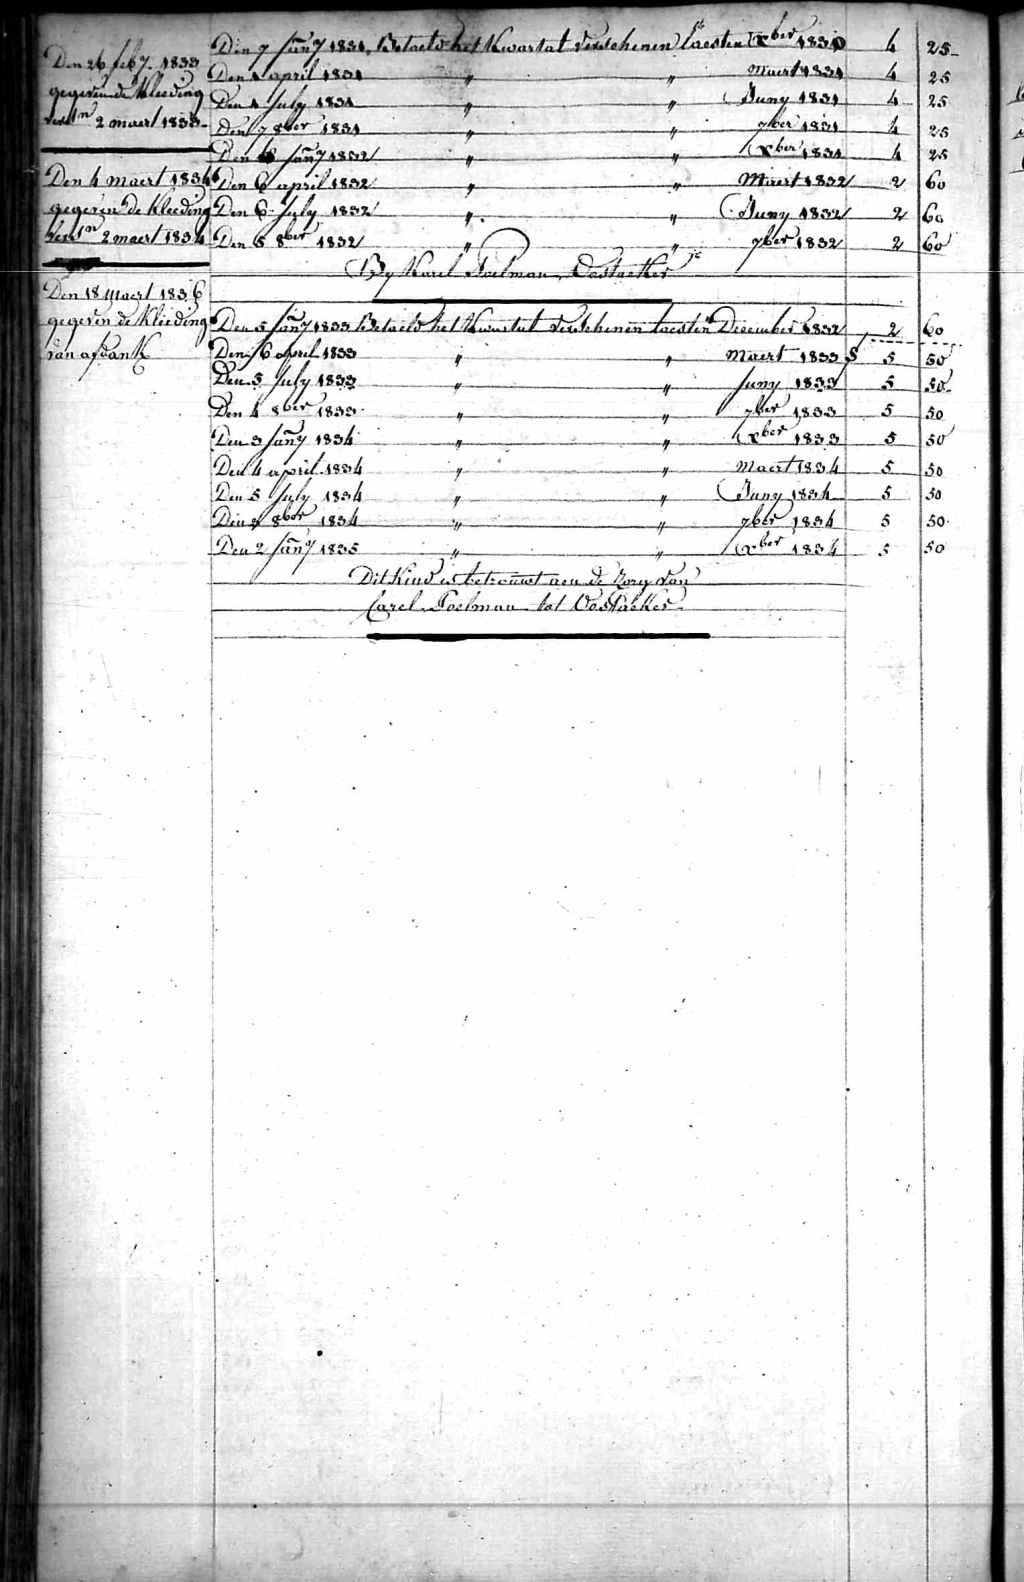 Den 26 feb.y 1833
gegeven de Kleeding
vers.n 2 maert 1833
Den 4 maert 1834
gegeven de Kleeding
vers.n 2 maert 1834
Den 18 maert 1836
gegeven de Kleeding
van afdank
Den 7 Jan.y 1831 Betaeld het Kwartal verschenen laesten Xber 1830 4 25
Den 4 april 1831 " " Maert 1831 4 25
Den 4 July 1831 " " Juny 1831 4 25
Den 7 8ber 1831 " " 7ber 1831 4 25
Den Jan.y 1832 " " Xber 1831 4 25
Den 6 april 1832 " " Maert 1832 2 60
Den 6 July 1832 " " Juny 1832 2 60
Den 5 8ber 1832 " " 7ber 1832 2 60
By Karel Poelman Oostacker
Den 5 Jan.y 1833 Betaeld het Kwartal verschenen laesten December 1832 2 60
Den 6 april 1833 " " Maert 1833 5 50
Den 5 July 1833 " " Juny 1833 5 50
Den 4 8ber 1833 " " 7ber 1833 5 50
Den 3 Jan.y 1834 " " Xber 1833 5 50
Den 4 april 1834 " " Maert 1834 5 50
Den 5 July 1834 " " Juny 1834 5 50
Den 3 8ber 1834 " " 7ber 1834 5 50
Den 2 Jan.y 1835 " " Xber 1834 5 50
Dit Kind is betrouwt aen de Zorg van
Carel Poelman tot Oostacker